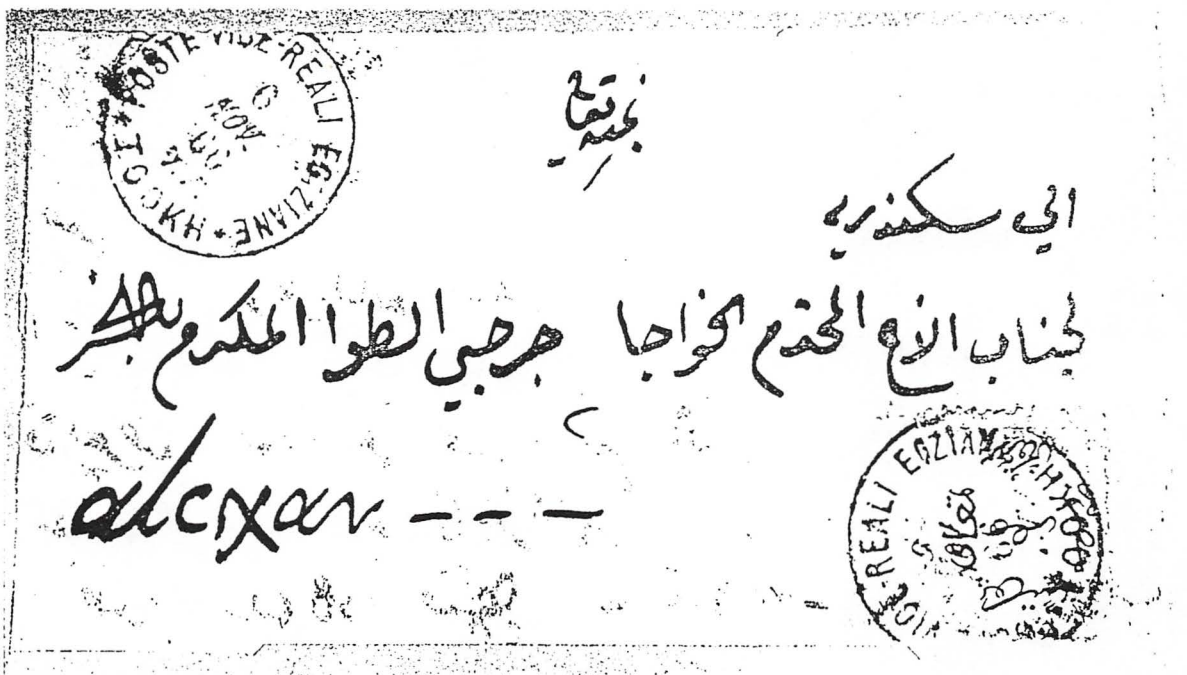 POSTE VICE-REALI EGIZIANE
6
NOV.
الي سكندريه
لجناب الاخ المحترم الخواجا جرجي الطوا المكرم
alexan ---
VICE-REALI EGIZIANE